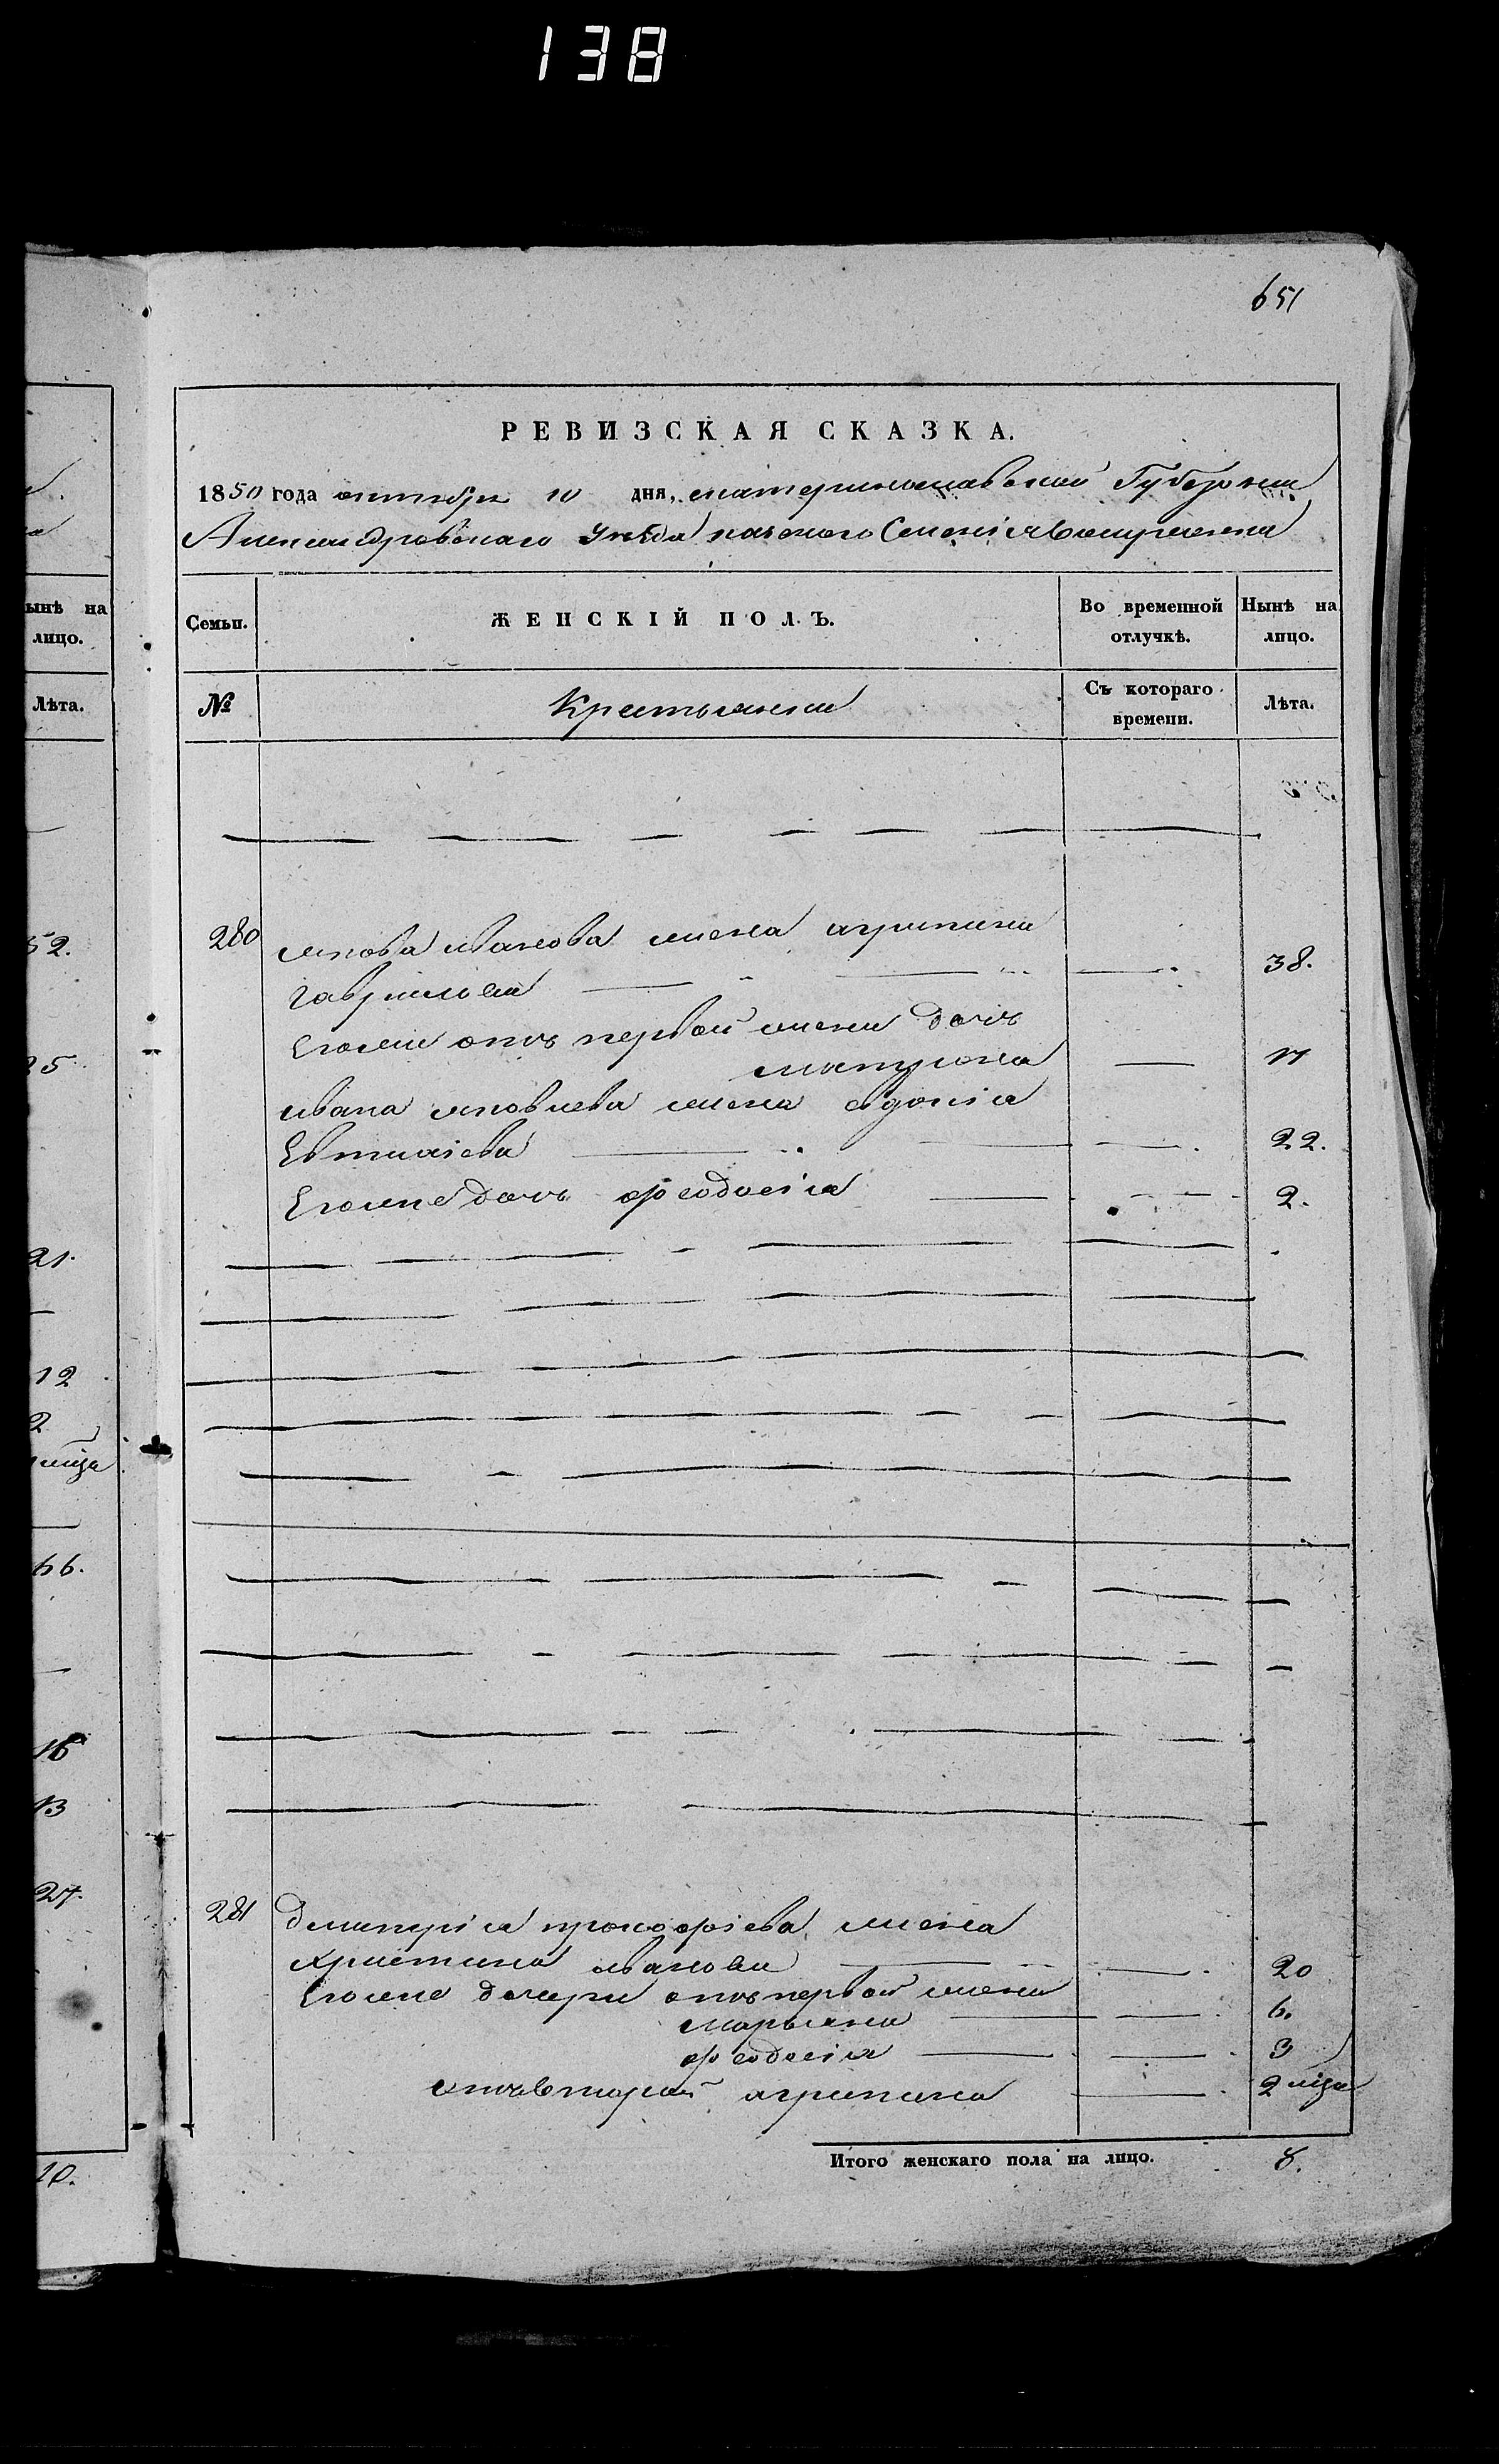 138
651
РЕВИЗСКАЯ СКАЗКА.
1850 года октября 10 дня, екатеринославской Губернии
Александровскаго Уезда казенного Селенія
ынѣ на
лицо.
Лѣта.
Семьи.
ЖЕНСКІЙ ПОЛЪ.
Во временной
отлучкѣ.
Нынѣ на
лицо.
№
Крестьянки
Съ котораго
времени.
Лѣта.
52.
21.
12
2
мца
66.
16
13
27.
10.
280 якова иванова жена агрипина
гаврилова 38.
Его же отъ первой жены дочь
матрона 17
ивана яковлева жена евдокіа
Евтихіева 22.
Его же дочь феодосіа 2.
281 димитріа прокофіева жена
христина иванова 20
Его же дочери отъ первой жены
марьяна 6.
феодосіа 3
отъ второй агрипина 2 мца
Итого женскаго пола на лицо. 8.